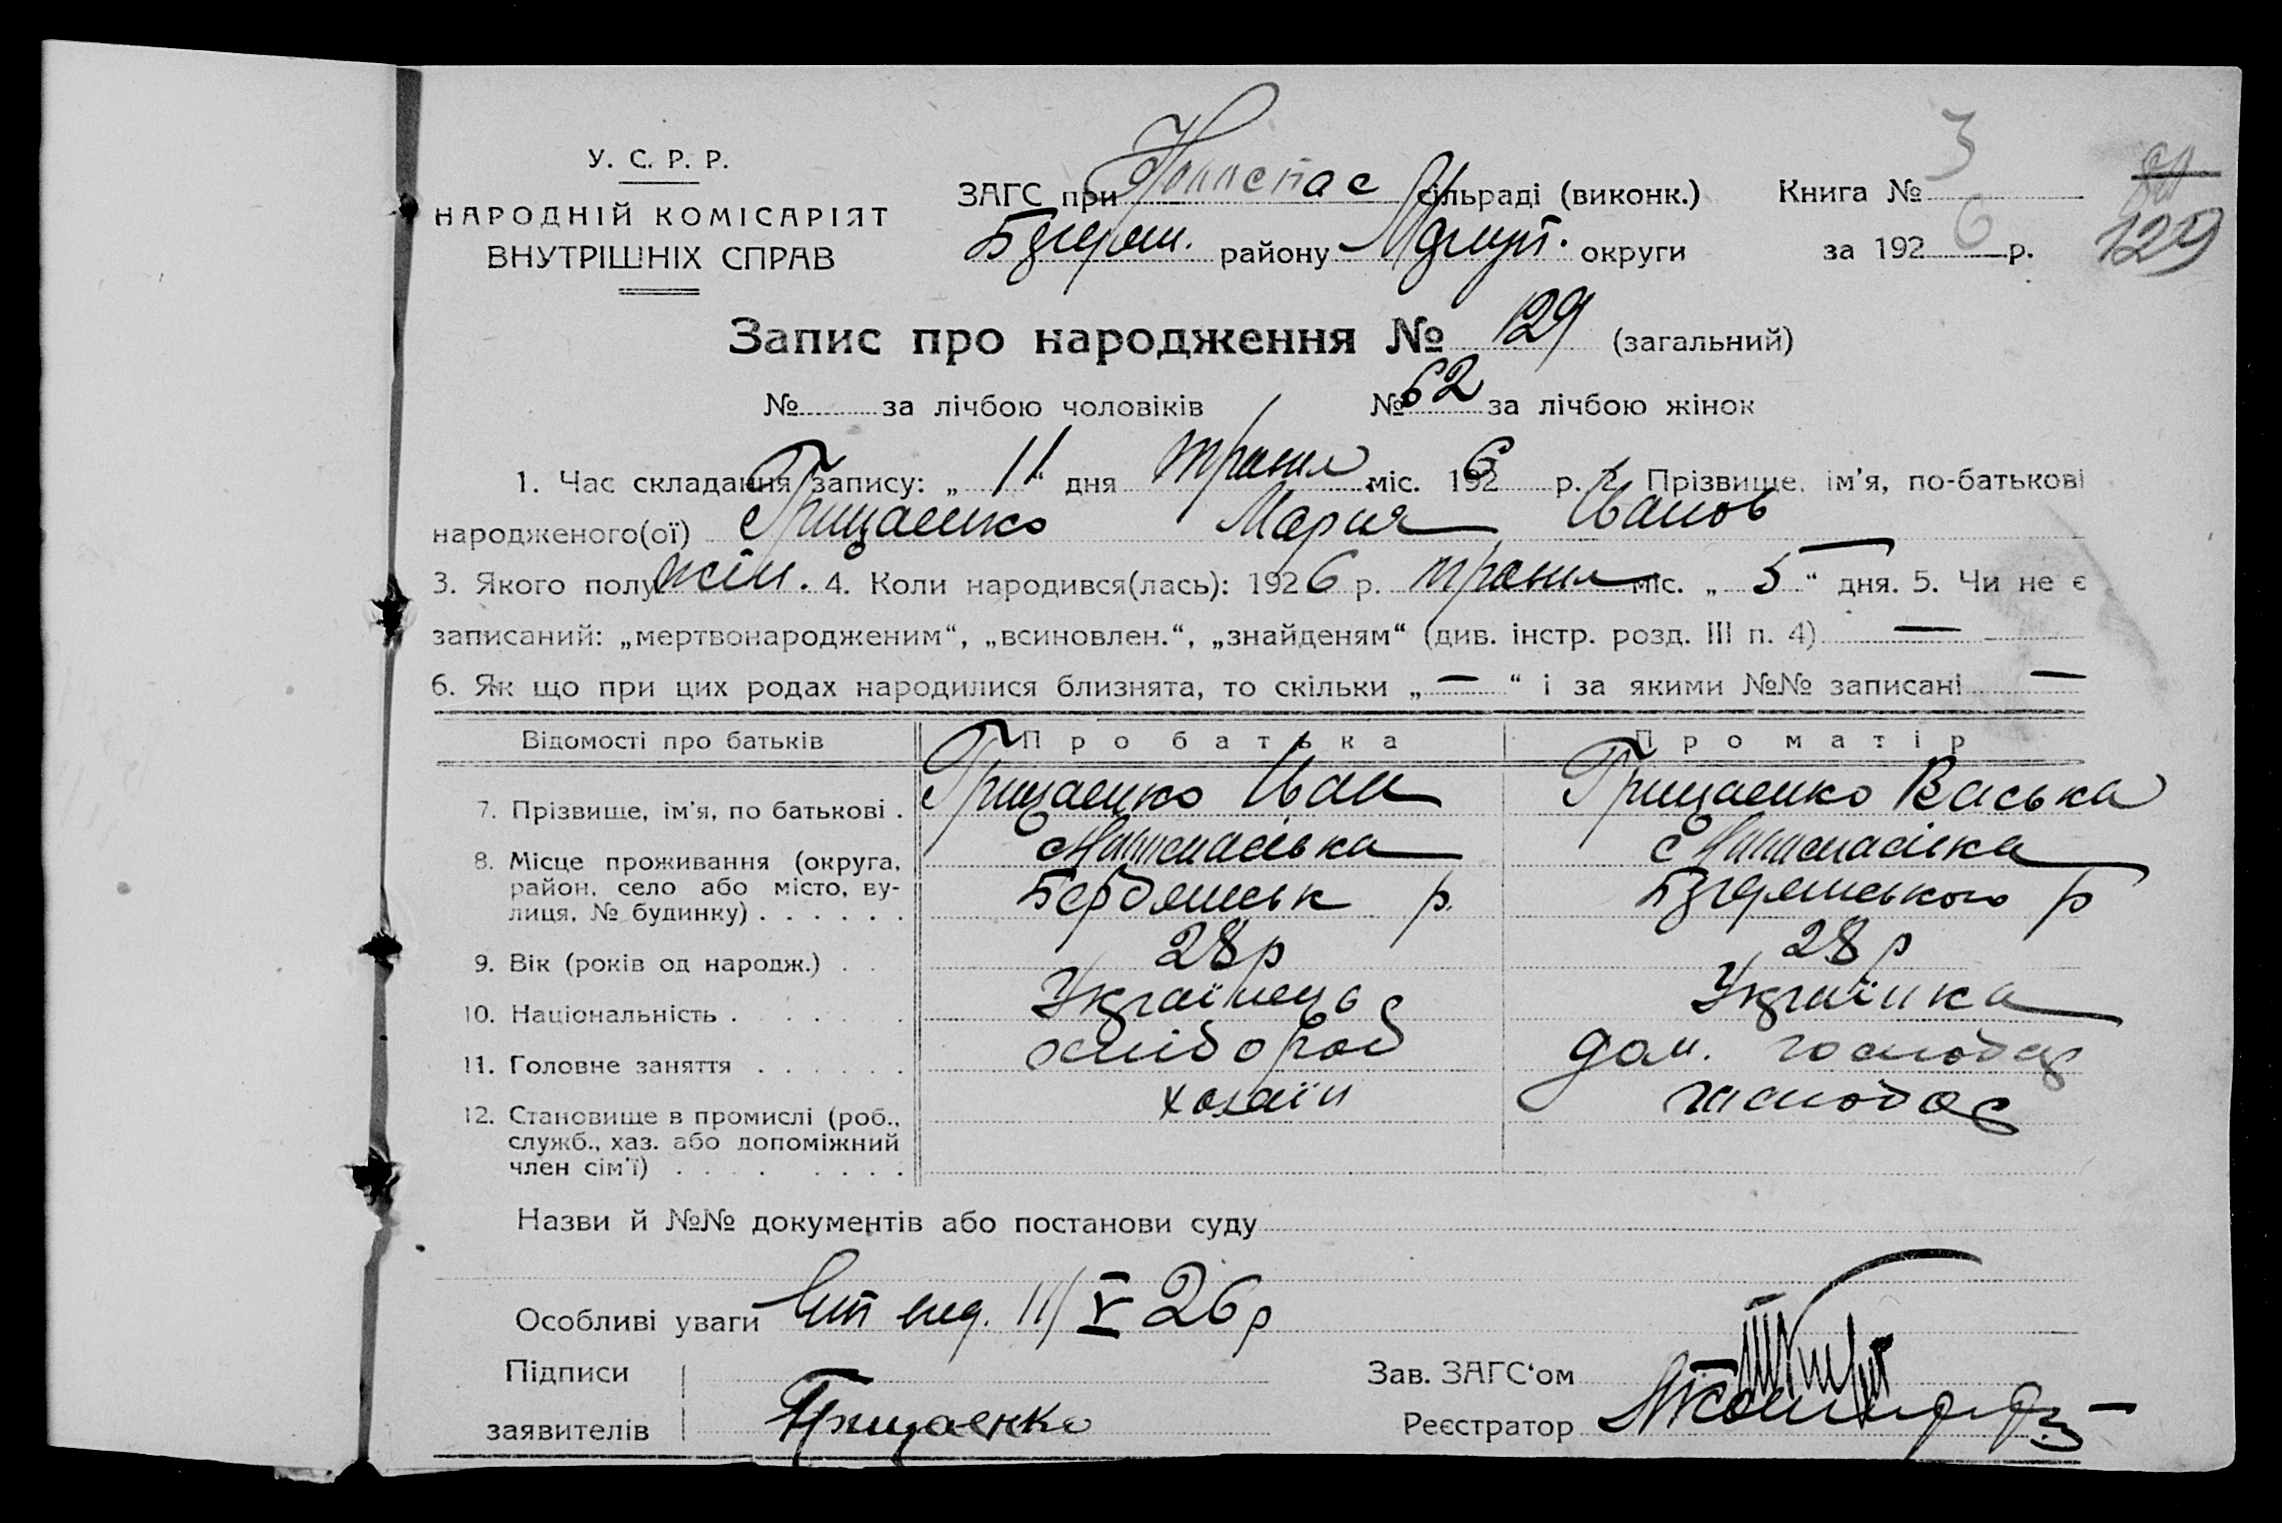 У. С. Р. Р.
НАРОДНІЙ КОМІСАРІЯТ
ВНУТРІШНІХ СПРАВ
ЗАГС при сільраді (виконк.)
району округи
Книга № 3
за 1926 р.
129
Запис про народження № 129 (загальний)
№ за лічбою чоловіків № 62 за лічбою жінок
1. Час складання запису: „11" дня травня міс. 1926 р. 2. Прізвище, ім'я, по-батькові
народженого(ої) Грицаенко Мария Иванов
3. Якого полу жін. 4. Коли народився(лась): 1926 р. травня міс. „5" дня. 5. Чи не є
записаний: „мертвонародженим", „всиновлен.", „знайденям" (див. інстр. розд. III п. 4) —
6. Як що при цих родах народилися близнята, то скільки „—" і за якими №№ записані —
Відомості про батьків Про батька Про матір
7. Прізвище, ім'я, по батькові . Грицаенко Иван Грицаенко Васька
8. Місце проживання (округа,
район, село або місто, ву-
лиця, № будинку) . . . . . . Бердянськ р.
9. Вік (років од народж.) . . 28 р 28 р
10. Національність . . . . . . Українець Українка
11. Головне заняття . . . . . . хлібороб дом. господар
12. Становище в промислі (роб., хозаїн господар
служб., хаз. або допоміжний
член сім'ї) . . . . . . . .
Назви й №№ документів або постанови суду
Особливі уваги 11/V 26 р
Підписи
заявителів Грицаенко
Зав. ЗАГС'ом
Реєстратор